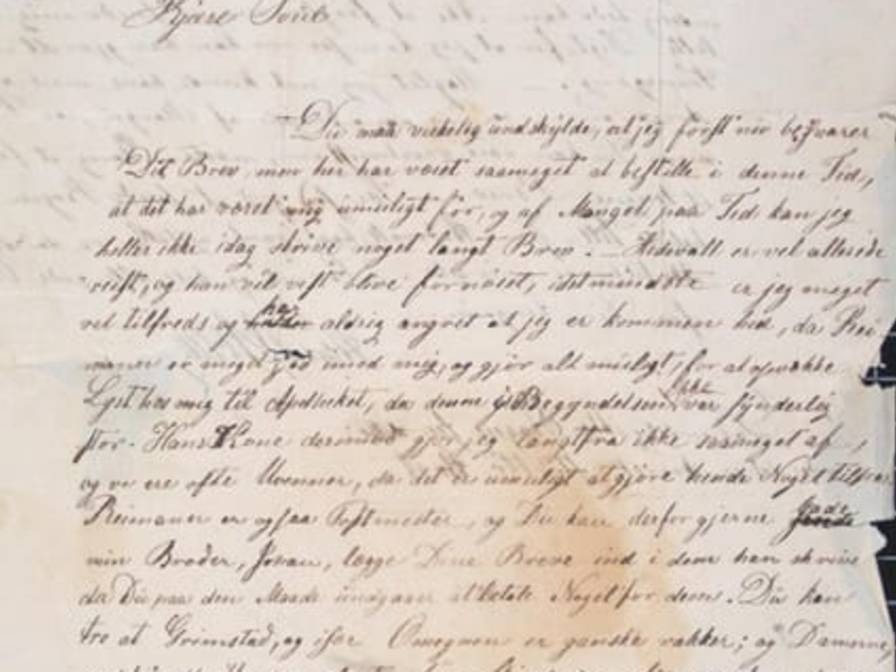 Kjære Poul
Du maa virkelig undskylde, at jeg först nu besvarer
Dit Brev, men her har været saameget at bestille i denne Tid,
at det har været mig umuligt för, og af Mangel paa Tid kan jeg
heller ikke idag skrive noget langt Brev. — er vel allerede
reist, og han vil vist blive fornöiet, idetmindste er jeg meget
vel tilfreds og har aldrig angret at jeg er kommen hid, da Rei
mann er meget god imod mig, og gjör alt muligt, for at opvække
Lyst hos mig til Apotheket, da denne i Begyndelsen ikke var synderlig
stor. Hans Kone derimod gjör jeg langtfra ikke saameget af,
og vi ere ofte Uvenner, da det er umuligt at gjöre hende Noget tilpas
Reimann er ogsaa Postmester, og Du kan derfor gjerne lade
min Broder, Johan, lægge Dine Breve ind i dem han skriver
da Du paa den Maade undgaaer at betale Noget for dem. Du kan
tro at Grimstad, og især Omegnen er ganske vakker; og Damerne